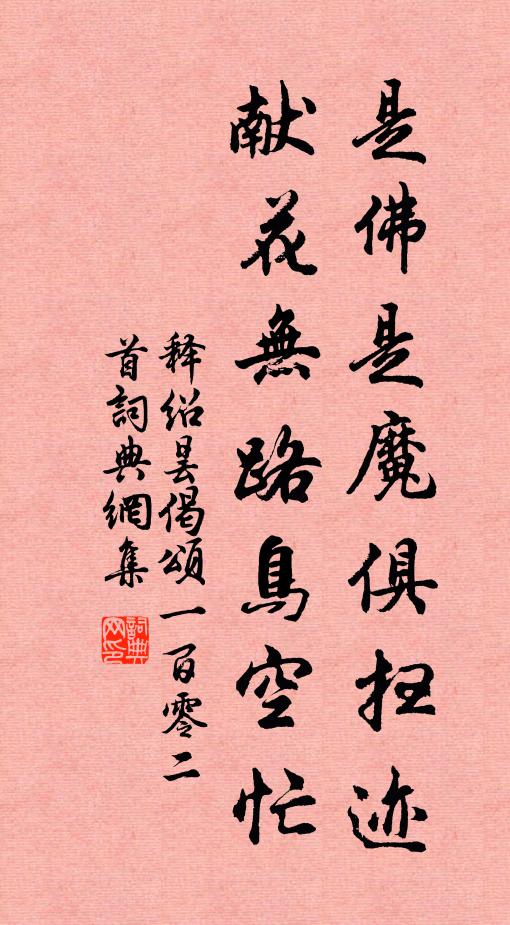 是佛是魔俱扫迹
献花無路鳥空忙
释绍昙偈頌一百零二
首詞典網集
詞典
网印